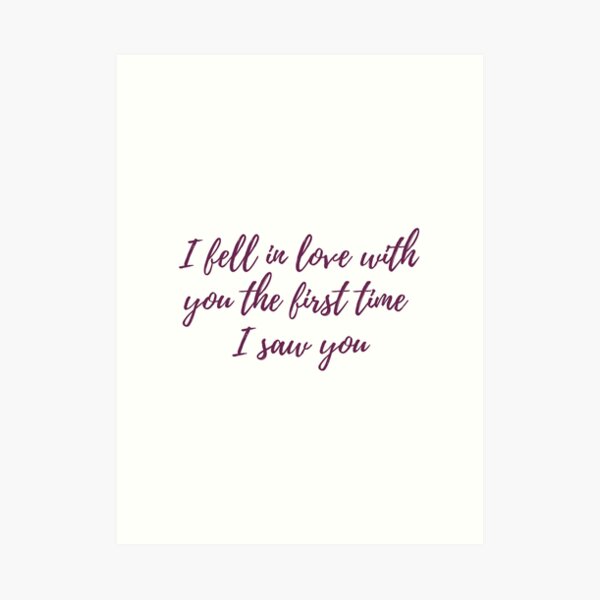 I fell in love with
you the first time
I saw you